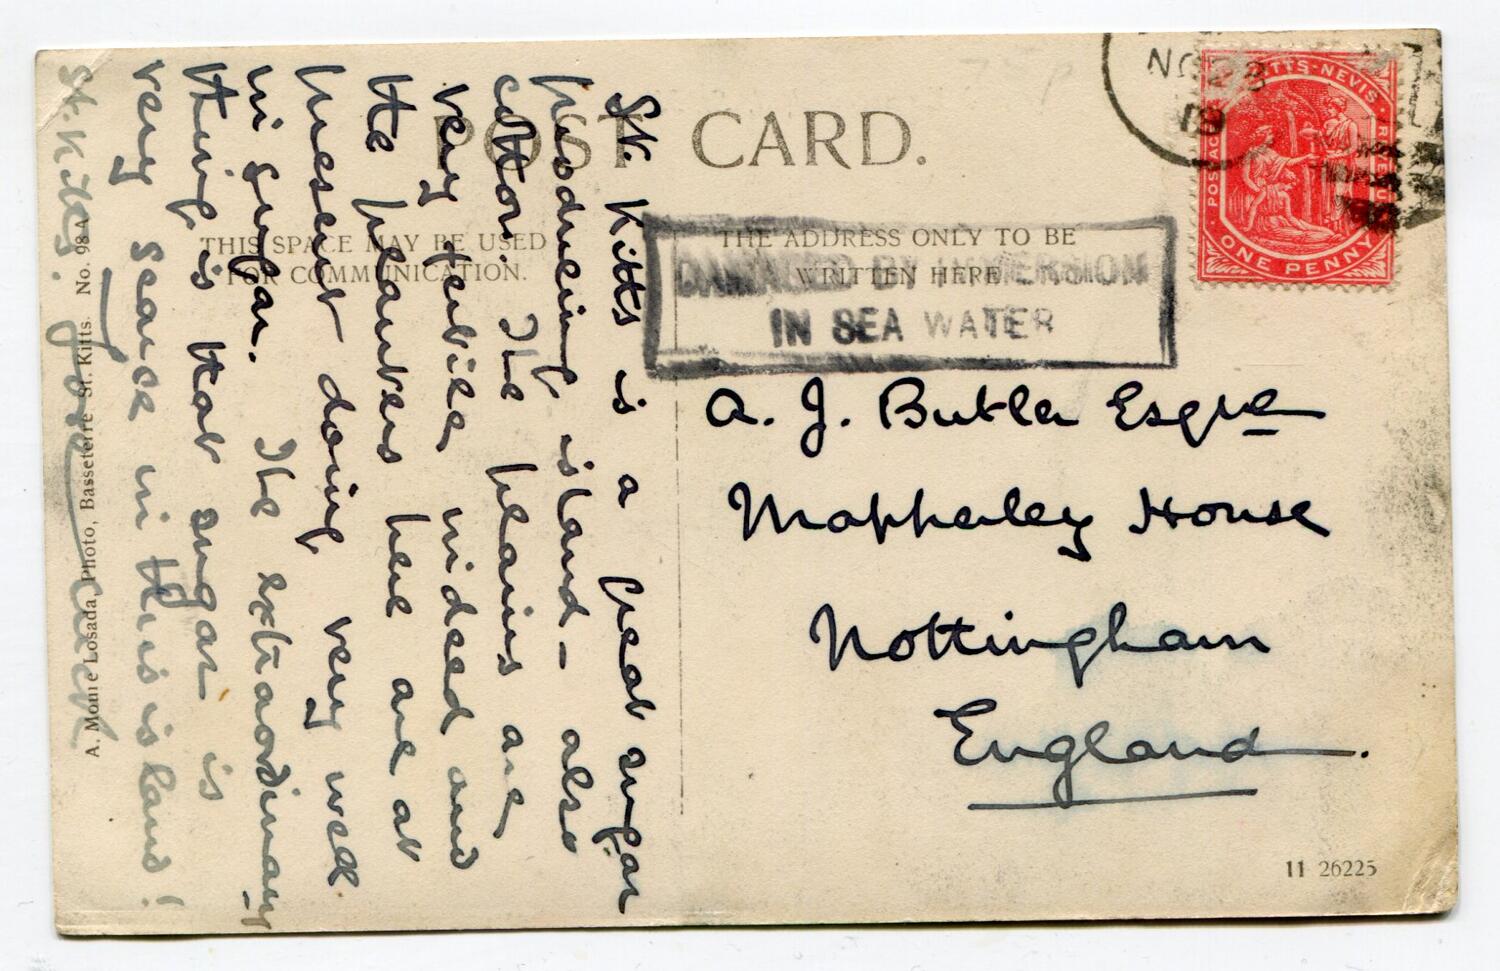 POST CARD.
THIS SPACE MAY BE USED
FOR COMMUNICATION.
THE ADDRESS ONLY TO BE
WRITTEN HERE
DAMAGED BY IMMERSION
IN SEA WATER
NO 28
19
ST KITTS-NEVIS
POSTAGE
REVENUE
ONE PENNY
A. J. Butler Esqre
Mapperley House
Nottingham
England.
St. Kitts is a great sugar
producing island - also
cotton. The plains are
very fertile indeed and
the planters here are at
present doing very well
in sugar. The extraordinary
thing is that sugar is
very scarce in this island!
St. Kitts.
A. Moure Losada, Photo, Basseterre St. Kitts. No. 98A
11 26225